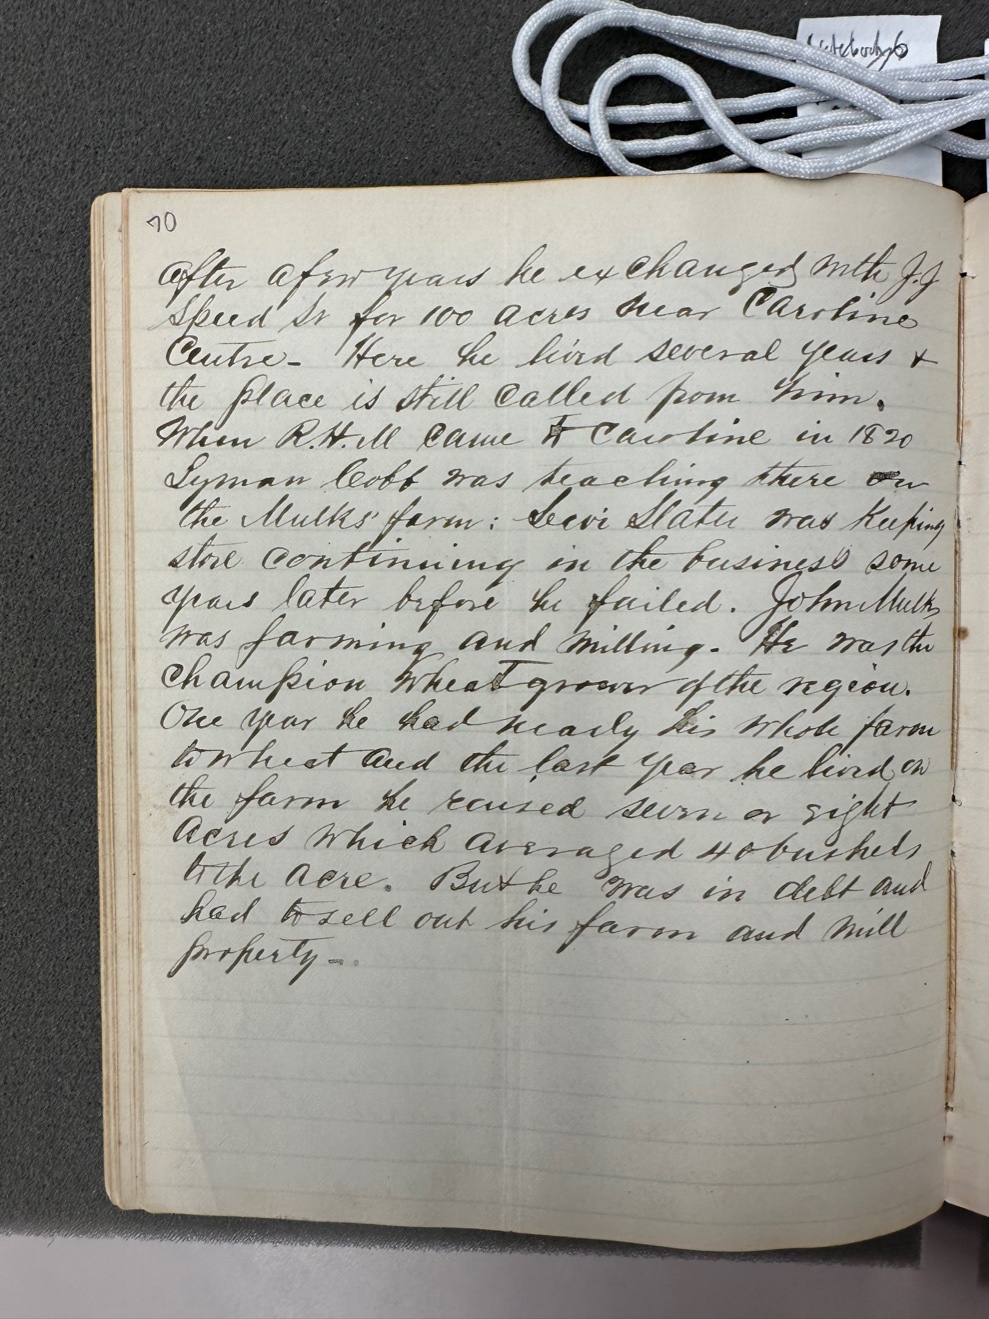 70
after a few years he exchanged with J.J
Speed Sr for 100 acres near Caroline
Centre - Here he lived several years +
the place is still called from him.
When R.H.M came to Caroline in 1820
Lyman Cobb was teaching there on
the Mulks' farm: Levi Slater was keeping
store continuing in the business some
years later before he failed. John Mulks
was farming and milling - He was the
champion wheat grower of the region.
One year he had nearly his whole farm
to wheat and the last year he lived on
the farm he raised seven or eight
acres which averaged 40 bushels
to the acre. But he was in debt and
had to sell out his farm and mill
property -